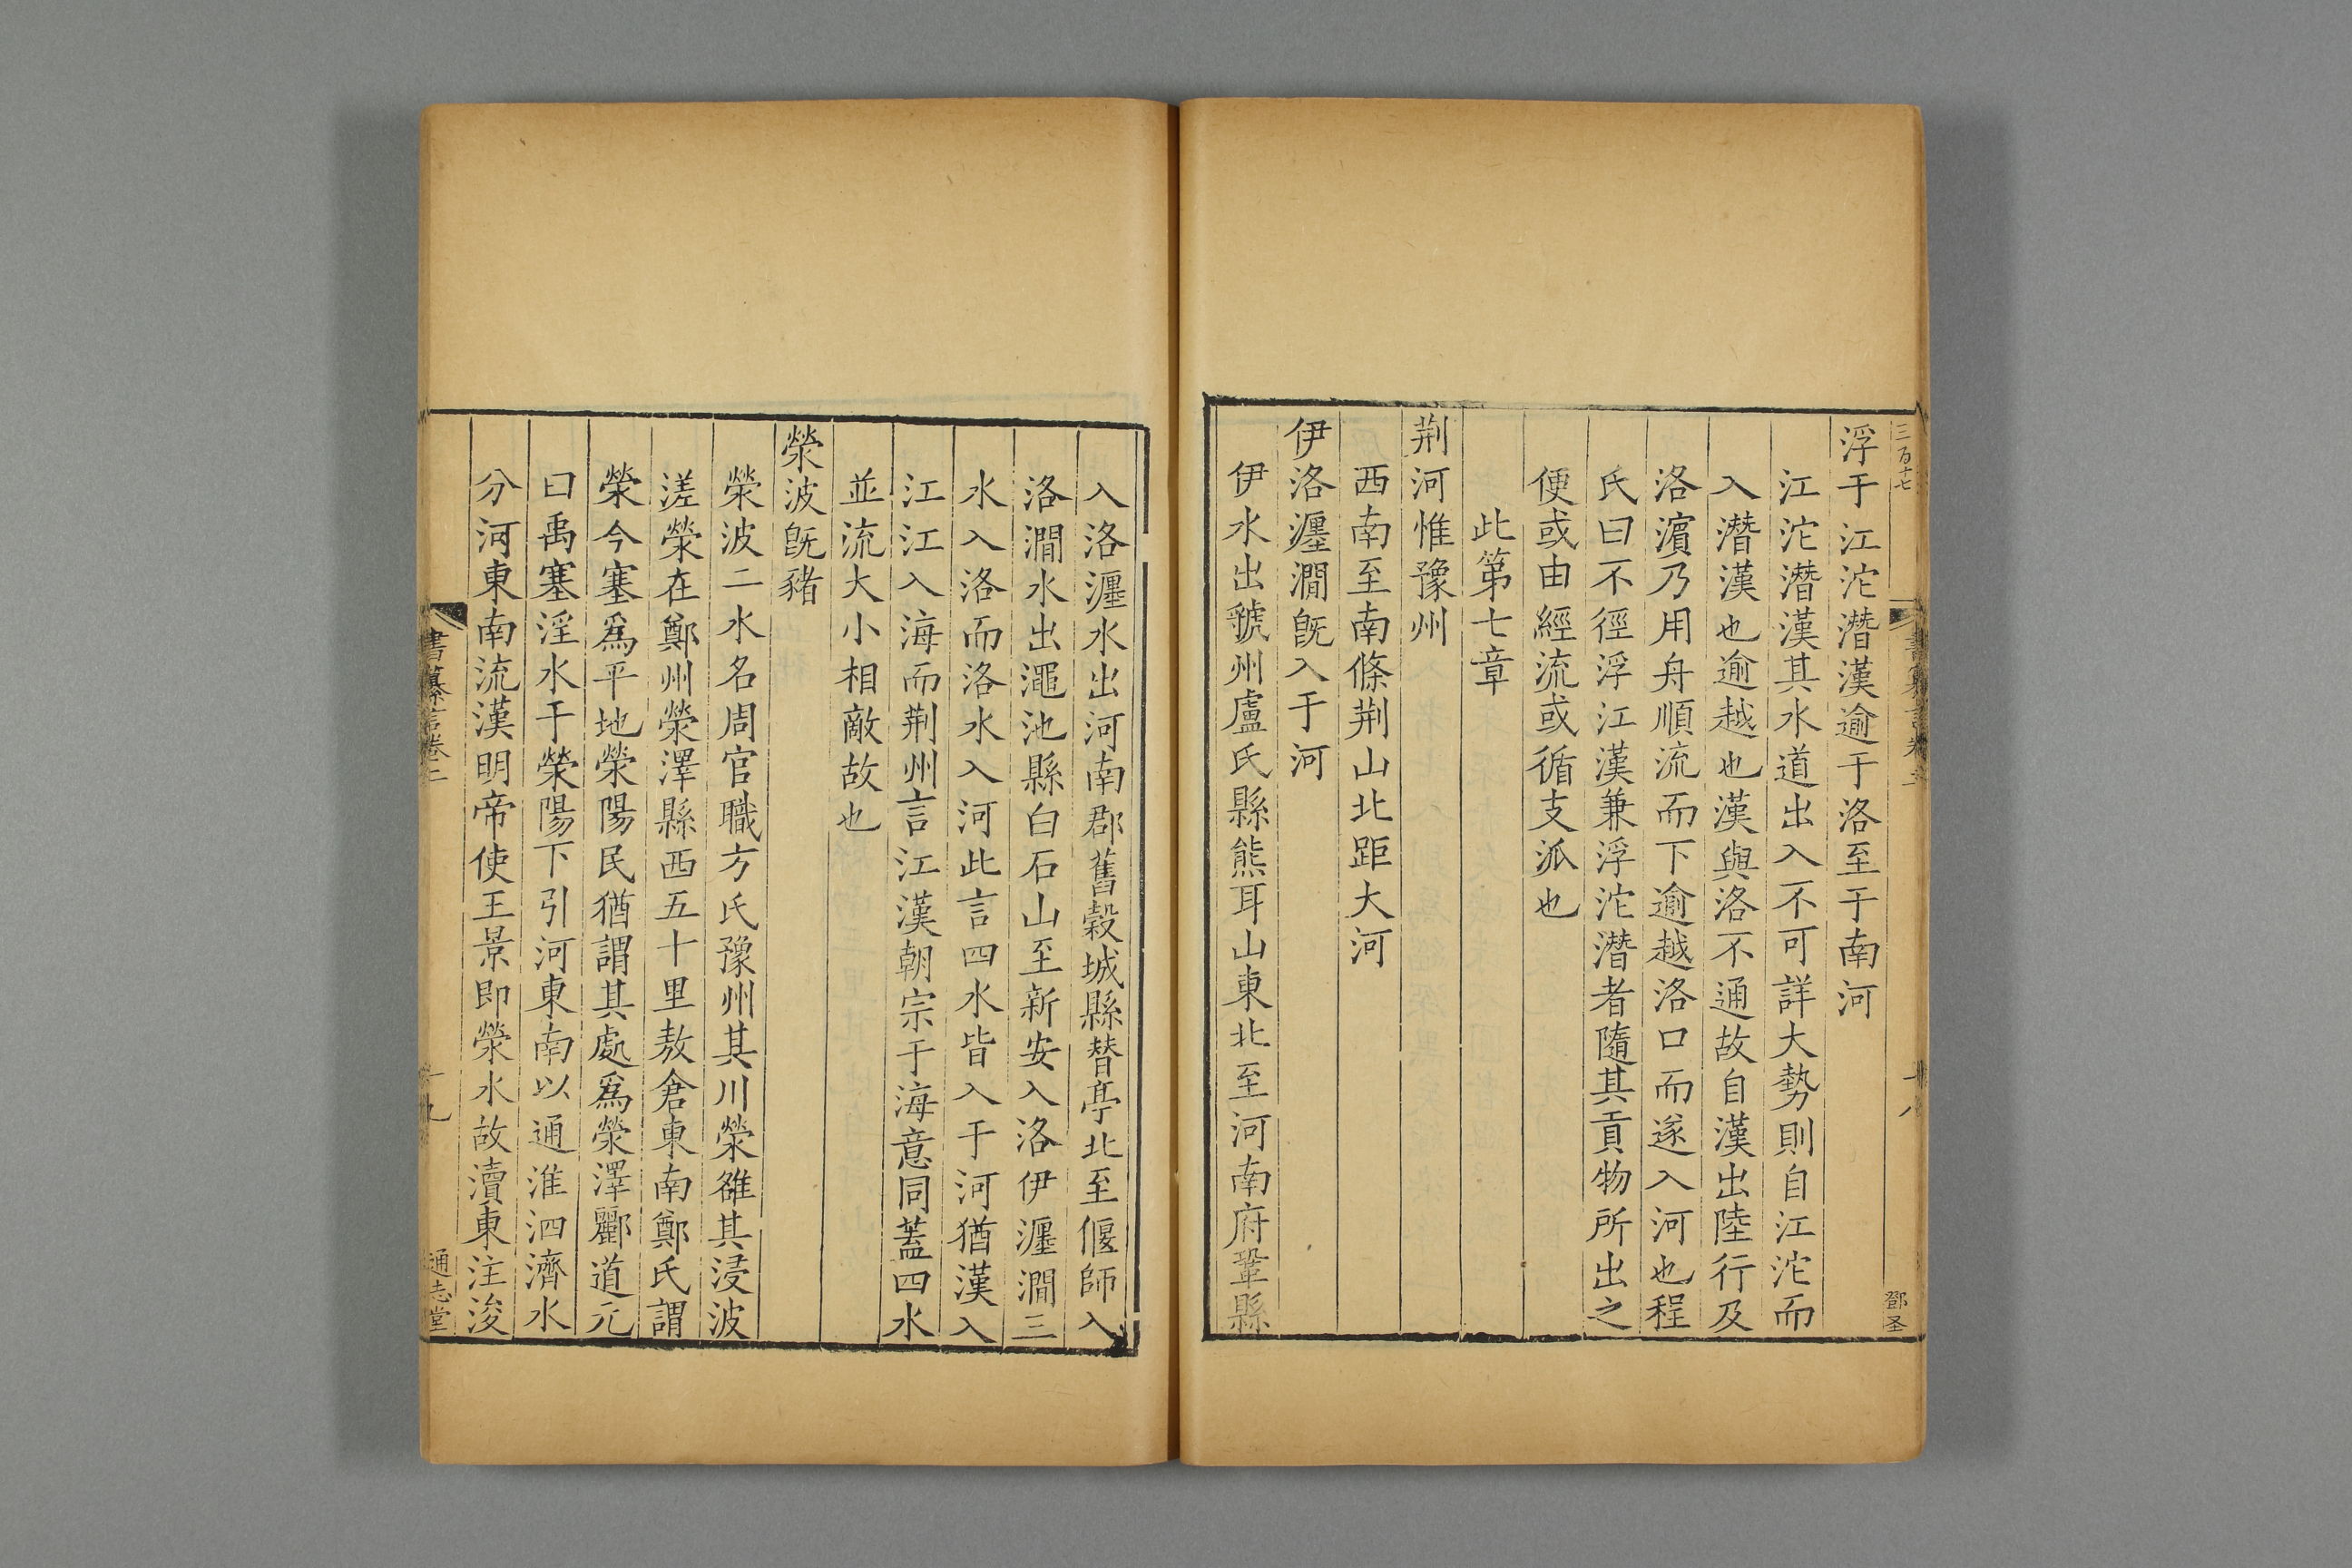 三百十七
浮于江沱潛漢逾于洛至于南河
江沱潛漢其水道出入不可詳大勢則自江沱而
入潛漢也逾越也漢與洛不通故自漢出陸行及
洛濵乃用舟順流而下逾越洛口而遂入河也程
氏曰不徑浮江漢兼浮沱潛者隨其貢物所出之
便或由經流或循支派也
此第七章
荆河惟豫州
西南至南條荆山北距大河
伊洛瀍澗旣入于河
伊水出虢州盧氏縣熊耳山東北至河南府鞏縣
十八
鄧圣
入洛瀍水出河南郡舊穀城縣替亭北至偃師入
洛澗水出澠池縣白石山至新安入洛伊瀍澗三
水入洛而洛水入河此言四水皆入于河猶漢入
江江入海而荆州言江漢朝宗于海意同蓋四水
並流大小相敵故也
滎波旣豬
滎波二水名周官職方氏豫州其川滎雒其浸波
溠滎在鄭州滎澤縣西五十里敖倉東南鄭氏謂
滎今塞爲平地滎陽民猶謂其處爲滎澤酈道元
曰禹塞淫水于滎陽下引河東南以通淮泗濟水
分河東南流漢明帝使王景即滎水故瀆東注浚
書纂言卷二
十九
通志堂